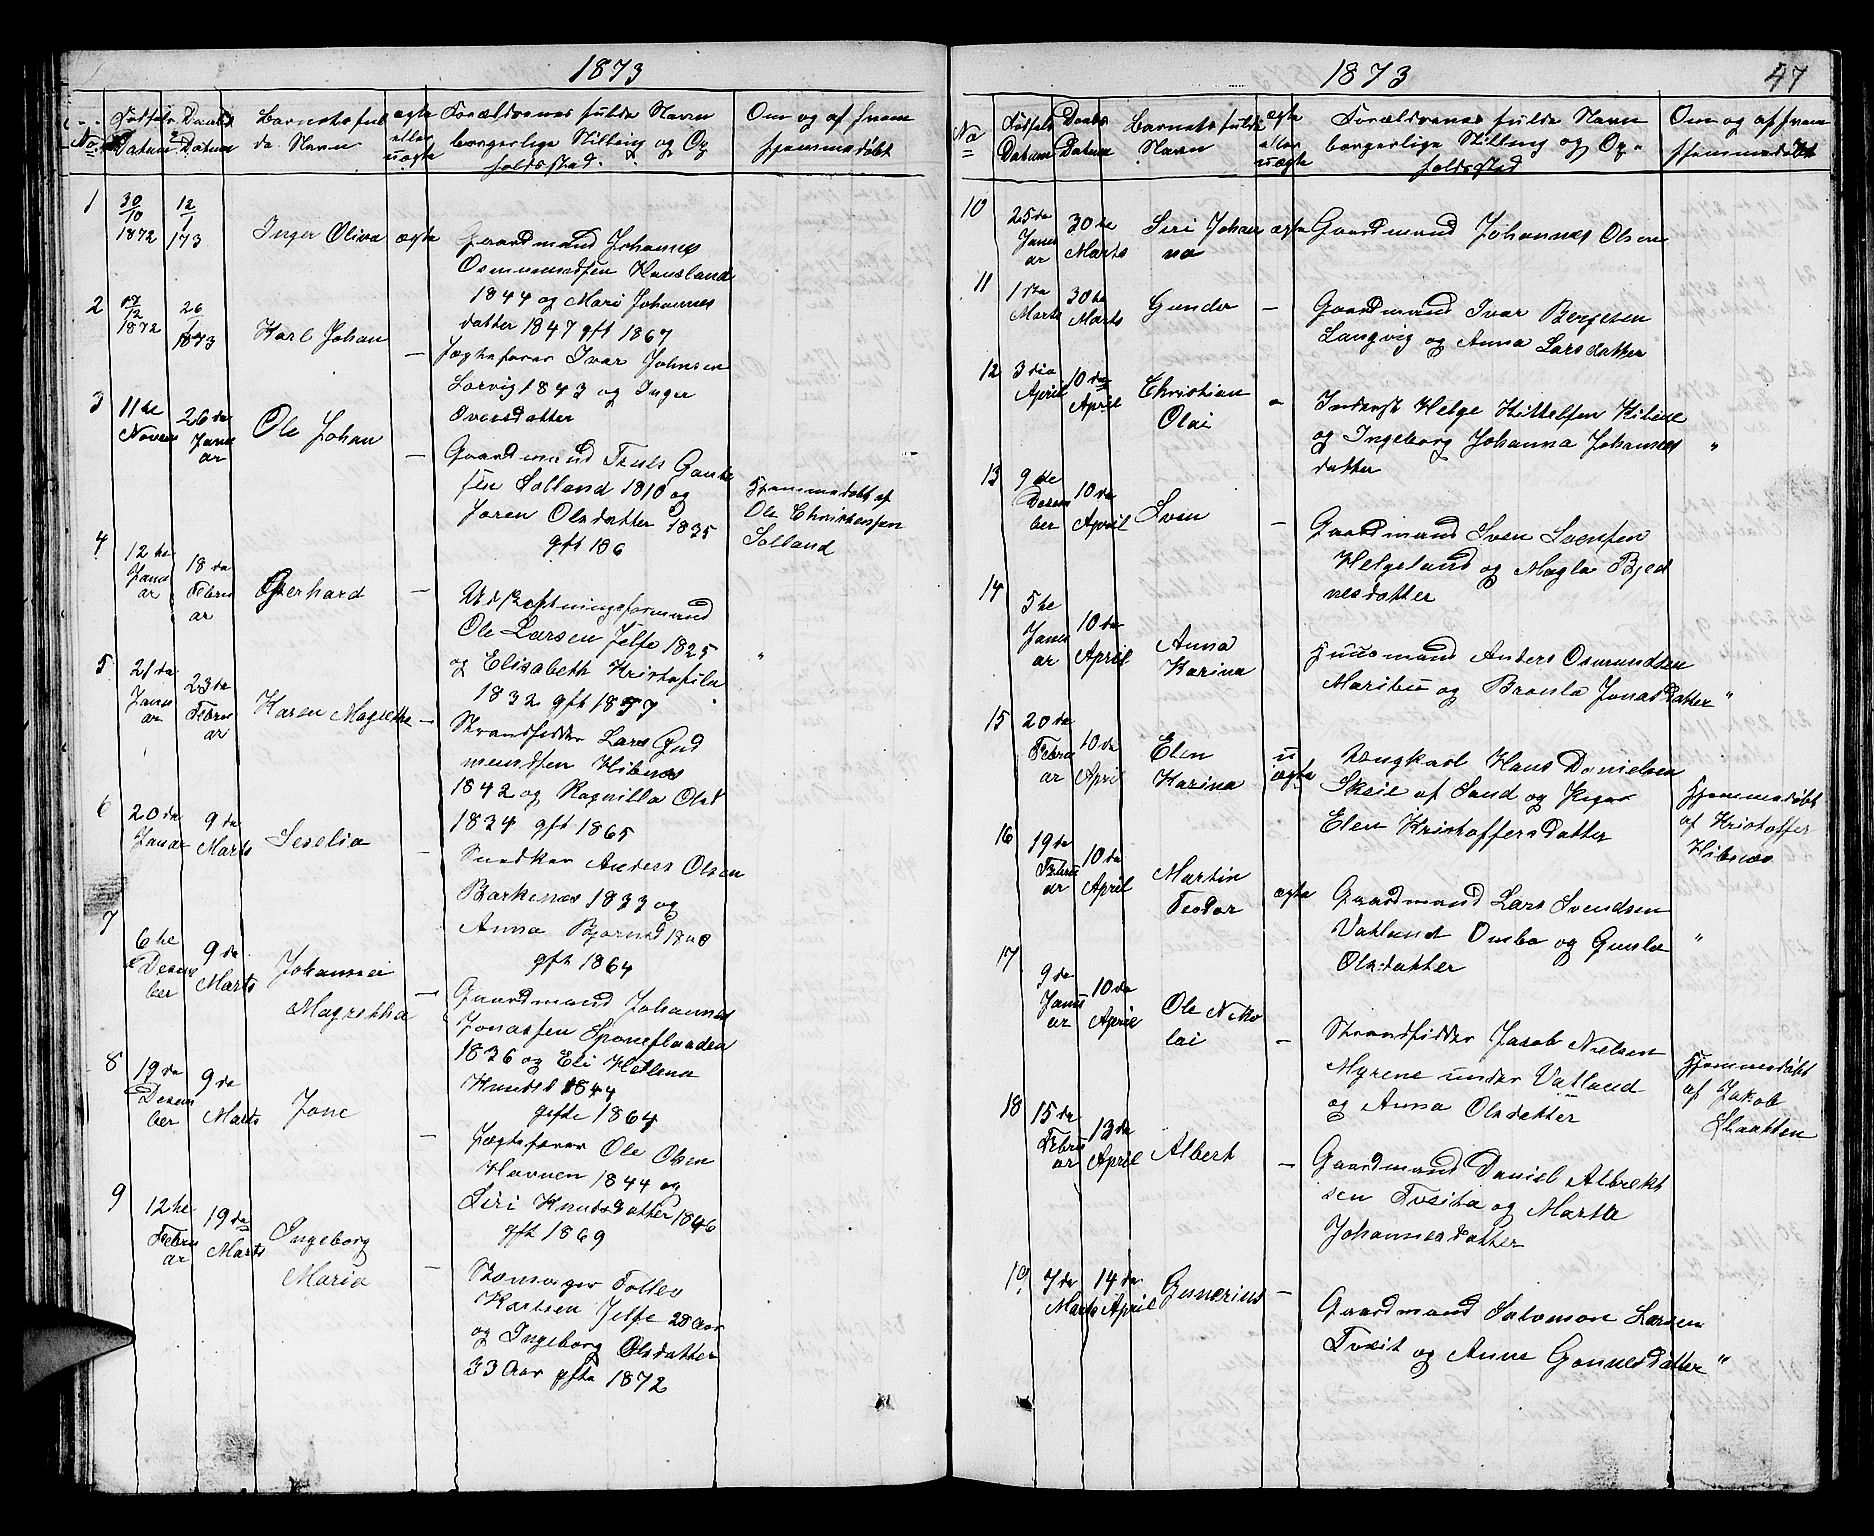 1873
No Fødsels Datum
Daabs Datum
Barnets fulde Navn
ægte eller uægte
Forældrenes fulde Navn borgerlige Stilling og Opholdssted.
Om og af hvem hjemmedøbt
1
30/10 1872
12/1 173
Inger Oliva
ægte
Gaardmand Johannes
Osmundsen Hausland
1844 og Mari Johannes
datter 1847 gft 1867
2
12 1872
26/1 1873
Karl Johan
–
Jægtefører Ivar Johnsen
Lorvig 1843 og Inger
Oversdatter
3
11te Novem
26da Januar
Ole Johan
–
Gaardmand Truls Gaute
sen Solland 1810 og
Joren Olsdatter 1835
gft 186
Hjemmedøbt af
Ole Christensen
Solland
4
12te Januar
18da Februar
Gerhard
–
Udskiftningsformand
Ole Larsen Jelse 1825
og Elisabeth Kristofila
1832 gft 1857
"
5
21da Januar
23da Februar
Karen Magretha
–
Strandsidder Lars Gud
mundsen Hibnæs
1842 og Ragnilla Olsd
1834 gft 1865
6
20da Januar
9da Marts
Seselia
–
Snedker Anders Olsen
Barkenæs 1833 og
Anna Bjørnsd 1840
gft 1864
7
6te Desember
9da Marts
Johannei
Magretha
–
Gaardmand Johannes
Jonassen Foreneflaaden
1836 og Eli Helena
Knudsd 1844
gifte 1864
8
19da Desember
9da Marts
Jone
–
Jægtefører Ole Olsen
Havnen 1844 og
Siri Knudsdatter 1846
gft 1869
9
12te Februar
19da Marts
Ingeborg
Maria
–
Skomager Tollev
Karlsen Jelse 28 Aar
og Ingeborg Olsdatter
33 Aar gfte 1872
1873
47
No
Fødsels Datum
Daabs Datum
Barnets fulde Navn
ægte eller uægte
Forældrenes fulde Navn borgerlige Stilling og Opholdssted
Om og af hvem hjemmedøbt
10
25da Januar
30te Marts
Siri Johan
na
ægte
Gaardmand Johannes Olsen
11
1ste Marts
30te Marts
Gunder
–
Gaardmand Ivar Bergesen
Langvig og Anna Larsdatter
12
3die April
10da April
Christian
Olai
–
Inderst Helge Kittelsen Hibdle
og Ingeborg Johanna Johannes
datter
"
13
9de Desember
10da April
Sven
–
Gaardmand Sven Svensen
Helgeland og Magla Bjed
nesdatter
14
5te Januar
10da April
Anna
Karina
–
Huusmand Anders Osmundsen
Maribu og Bronla Jonasdatter
"
15
20da Februar
10da April
Elen
Karina
u
ægte
Ungkarl Hans Danielsen
Skeie af Sand og Pigen
Elen Kristoffersdatter
Hjemmedøbt
af Kristoffer
Hibnæs
16
19da Februar
10da April
Martin
Teodor
ægte
Gaardmand Lars Svendsen
Vatland Ombo og Gunla
Olsdatter
"
17
9da Januar
10da April
Ole Niko
lai
–
Strandsidder Jacob Nielsen
Myrene under Vatland
og Anna Olsdatter
Hjemmedøbt
af Jakob
Slaatten
18
15da Februar
13da April
Albert
–
Gaardmand Daniel Albrekt
sen Tveita og Marta
Johannesdatter
19
7da Marts
14da April
Gunerius
–
Gaardmand Salomon Larsen
Tveit og Anne Gonnesdatter
"